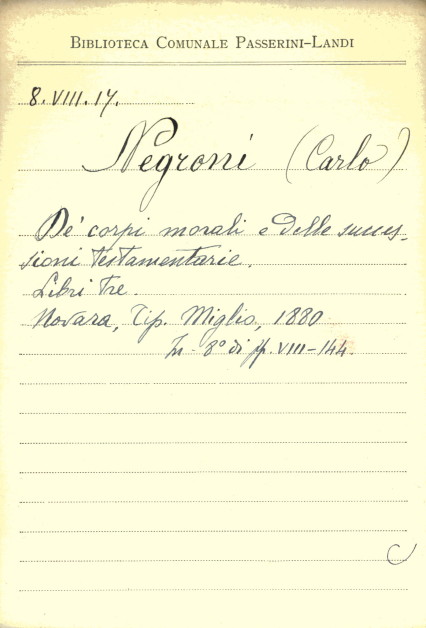 BIBLIOTECA COMUNALE PASSERINI-LANDI
8. VIII. 17.
Negroni (Carlo)
De' corpi morali e delle succes-
sioni testamentarie.
Libri tre.
Novara, Tip. Miglio, 1880
In - 8° di pp. VIII-144.
C